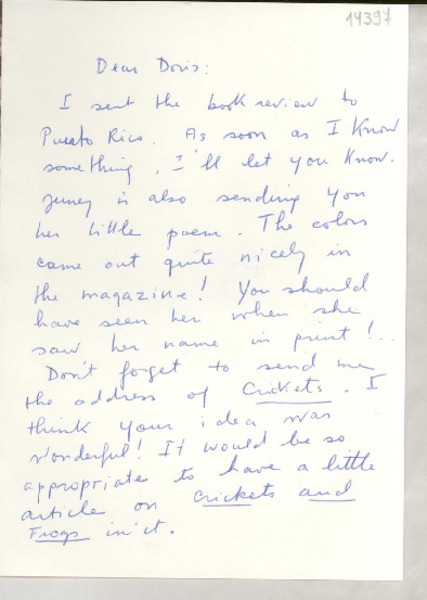 14397
Dear Doris:
I sent the book review to
Puerto Rico. As soon as I know
something, I'll let you know.
is also sending you
her little poem. The colors
came out quite nicely in
the magazine! You should
have seen her when she
saw her name in print!..
Don't forget to send me
the address of Crickets. I
think your idea was
wonderful! It would be so
appropriate to have a little
article on Crickets and
Frogs in it.